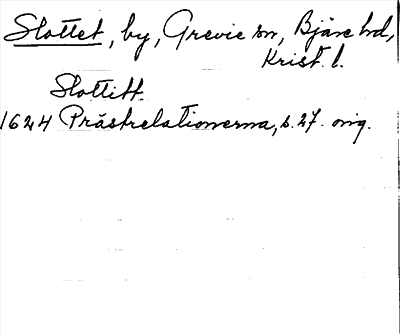 Slottet, by, Grevie sn, Bjäre hd,
Krist. l.
Slottitt
1624 Prästrelationerna, s. 27. orig.